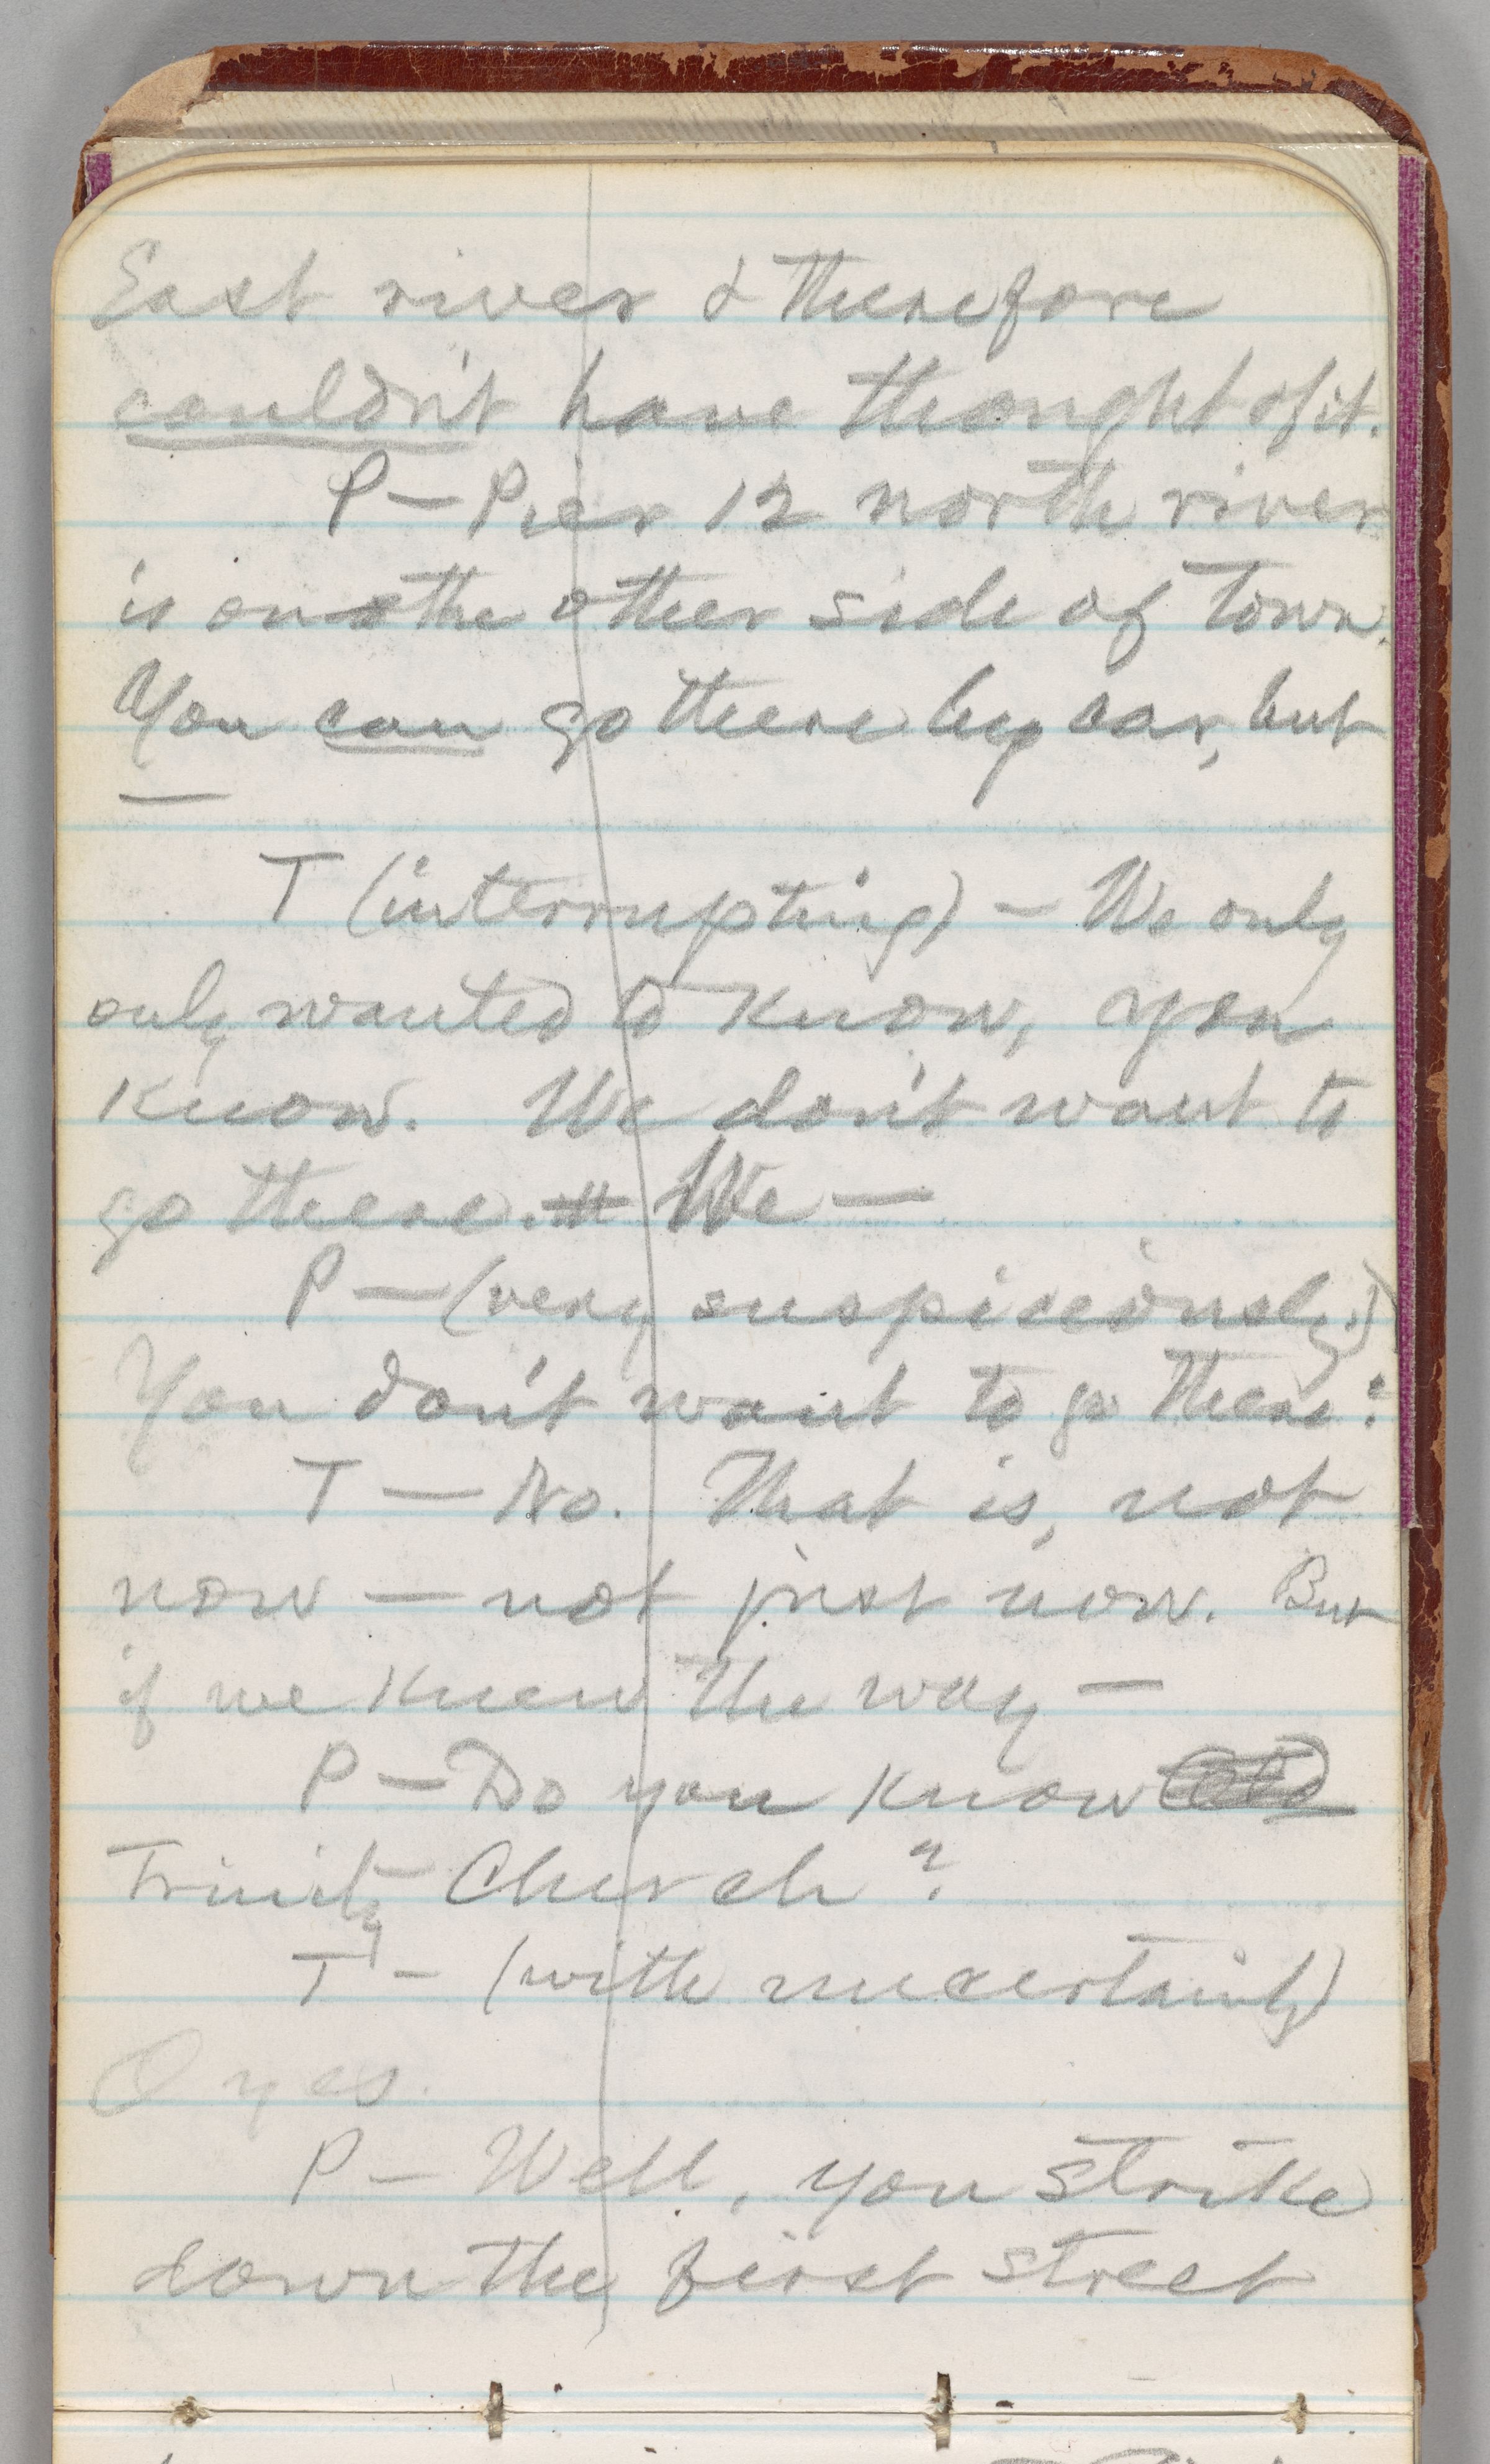 East river & therefore
couldn't have thought of it.
P — Pier 12 north river
is on the other side of town.
You can go there by car, but
—
T (interrupting) — We only
only wanted to know, you
know. We don't want to
go there. We —
P — (very suspiceously)
You don't want to go there?
T — No. That is, not
now — not just now. But
if we knew the way —
P — Do you know
Trinity Church?
T — (with uncertainty)
O yes.
P — Well, you strike
down the first street